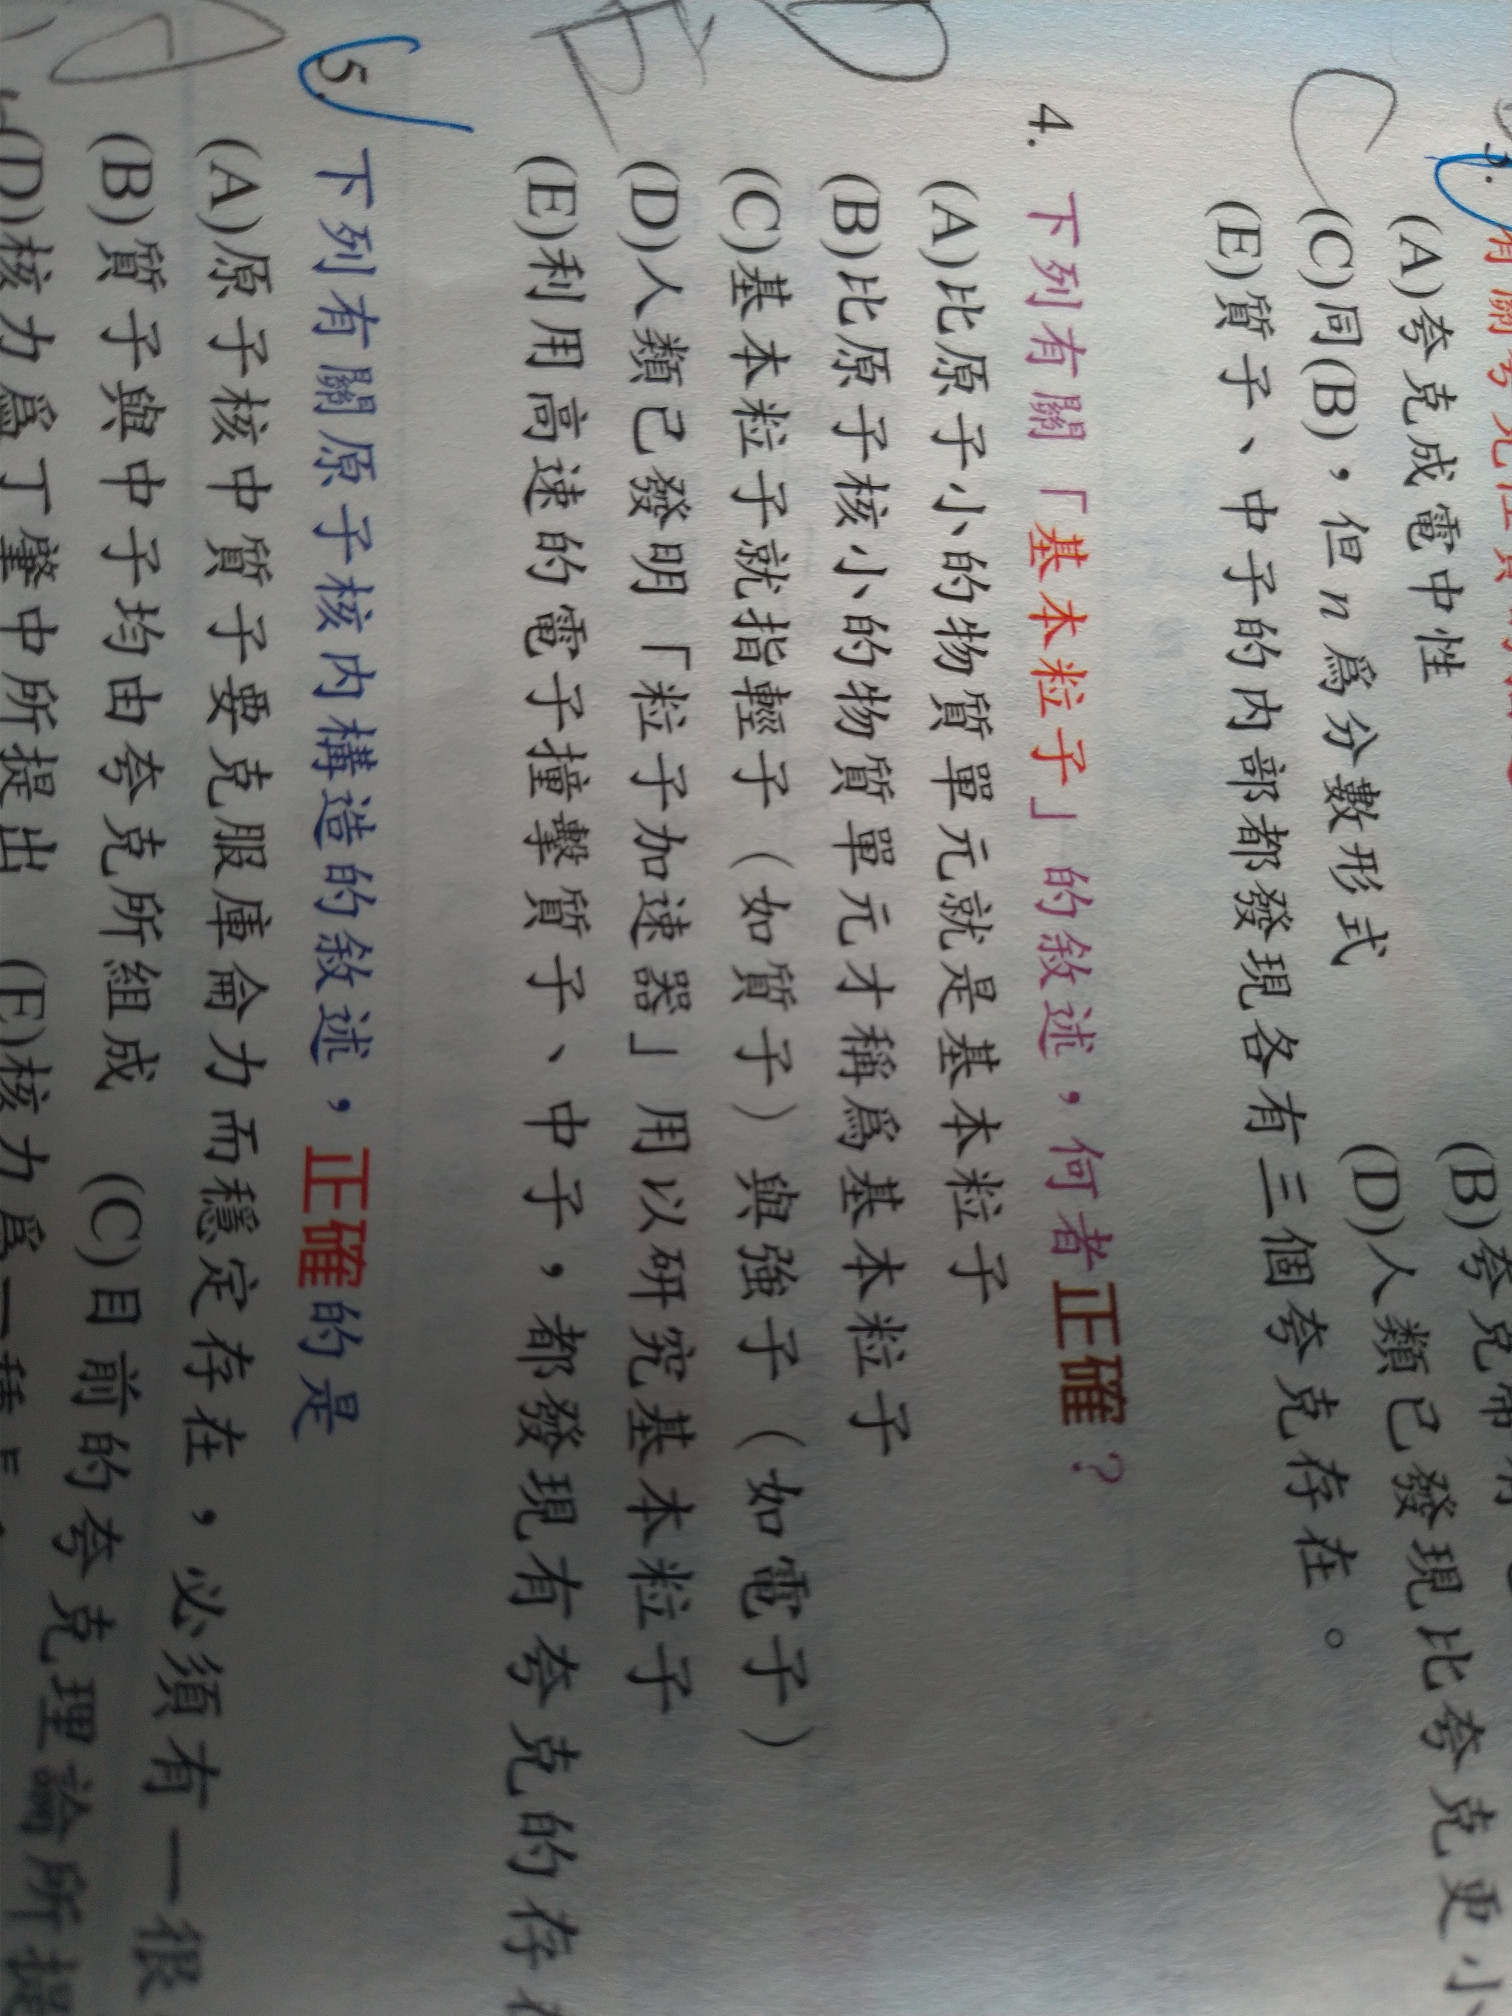 3. 有關夸克性質
(A)夸克成電中性
(B)夸克帶
(C)同(B)，但n為分數形式
(D)人類已發現比夸克更小
(E)質子、中子的內部都發現各有三個夸克存在。
4. 下列有關「基本粒子」的敘述，何者正確？
(A)比原子小的物質單元就是基本粒子
(B)比原子核小的物質單元才稱爲基本粒子
(C)基本粒子就指輕子（如質子）與強子（如電子）
(D)人類已發明「粒子加速器」用以研究基本粒子
(E)利用高速的電子撞擊質子、中子，都發現有夸克的存
5. 下列有關原子核內構造的敘述，正確的是
(A)原子核中質子要克服庫侖力而穩定存在，必須有一很
(B)質子與中子均由夸克所組成 (C)目前的夸克理論所提
(D)核力爲丁肇中所提出 (E)核力爲一種